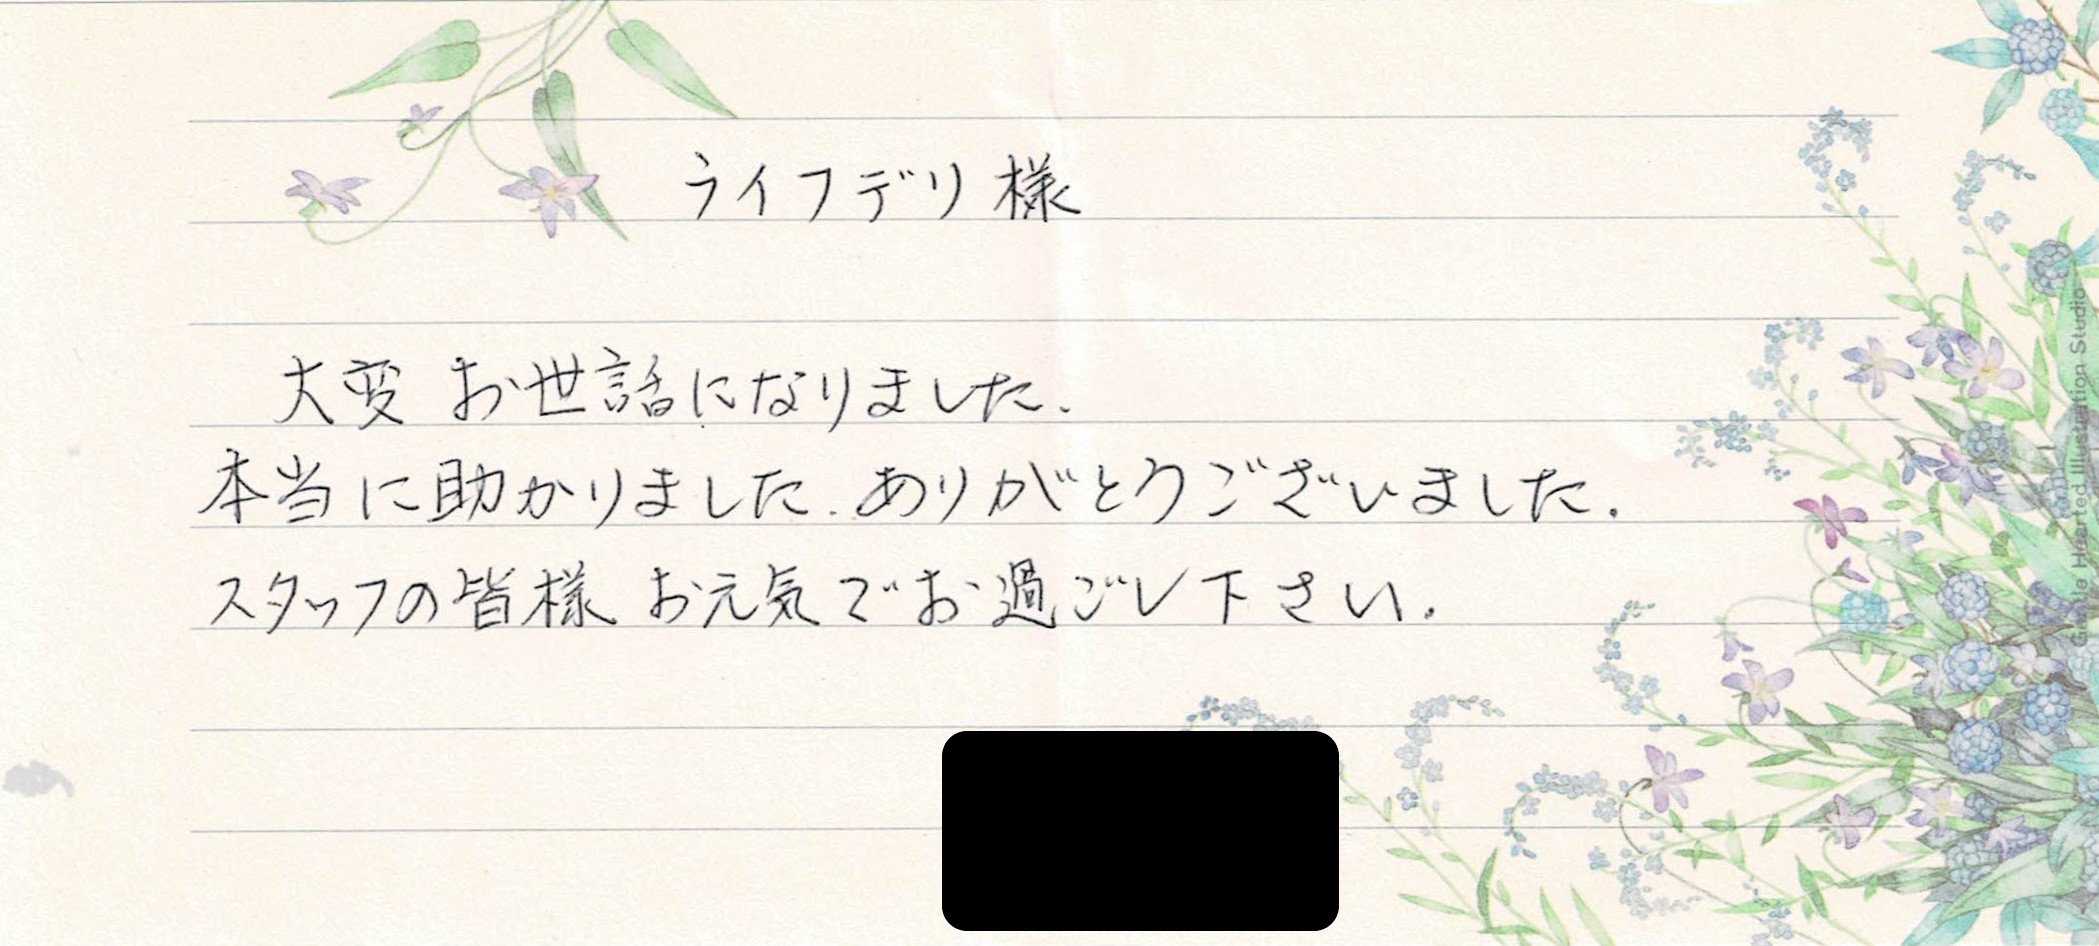 ライフデリ様
大変 お世話になりました.
本当に助かりました. ありがとうございました.
スタッフの皆様 お元気でお過ごし下さい.
Gentle Hearted Illustration Studio